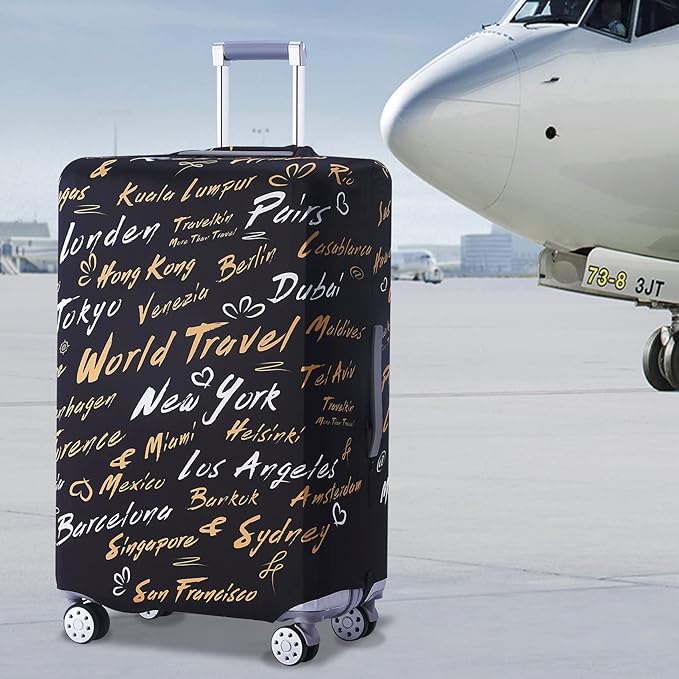 &
gas
Kuala Lumpur
Rio
Londen
Travelkin
More Than Travel
Pairs
Hong Kong
Berlin
Casablanca
Tokyo
Venezia
Dubai
World Travel
Maldives
New York
Tel Aviv
Travelkin
More Than Travel
enhagen
Helsinki
&
Miami
Los Angeles
Mexico
Barkuk
Amsterdam
Barcelona
Singapore
&
Sydney
San Francisco
@
73-8 3JT
73-8 3JT